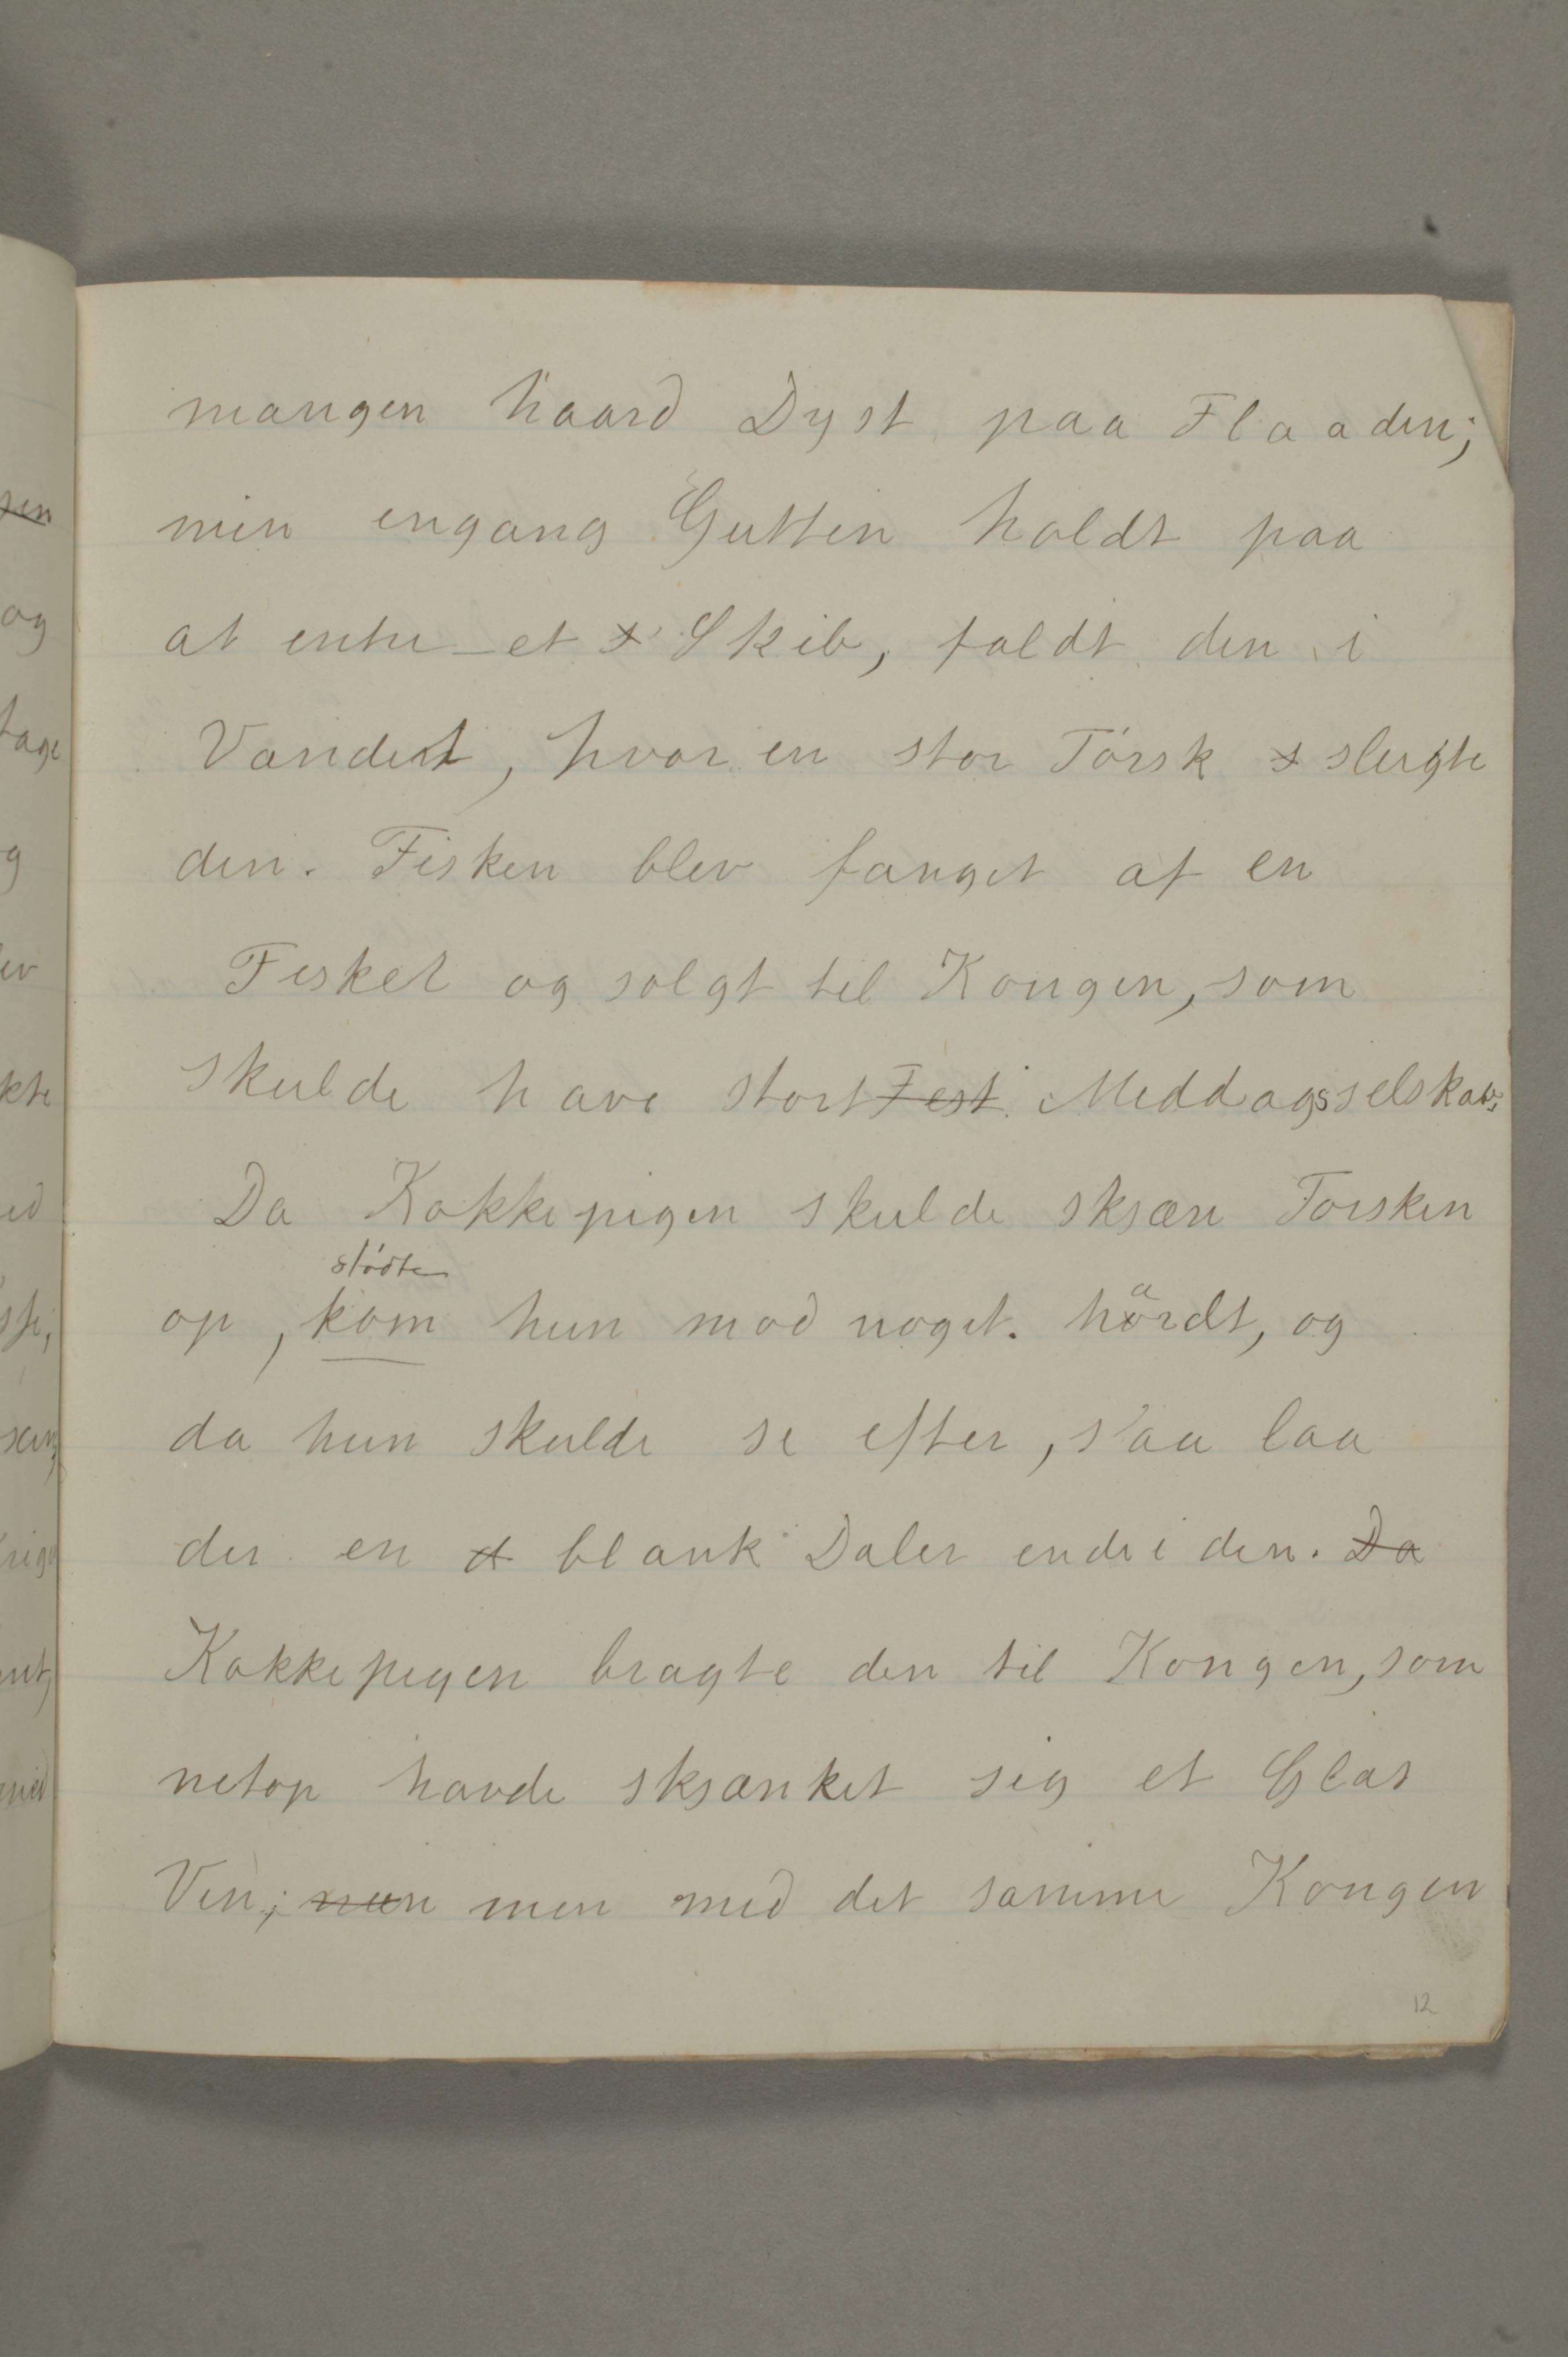 mangen haard Dyst paa Flaaden;
men engang Gutten holdt paa
at entre et s Skib, faldt den i
Vandet, hvor en stor Torsk s slugte
den. Fisken blev fanget af en
Fisker og solgt til Kongen, som
skulde have stort Fest Middagsselskab,
Da Kokkepigen skulde skjære Torsken
stödte
op, kom hun mod noget. hårdt, og
da hun skulde se efter, saa laa
der en st blank Daler inde i den. Da
Kokkepigen bragte den til Kongen, som
netop havde skjænket sig et Glas
Vin; men men med det samme Kongen
12